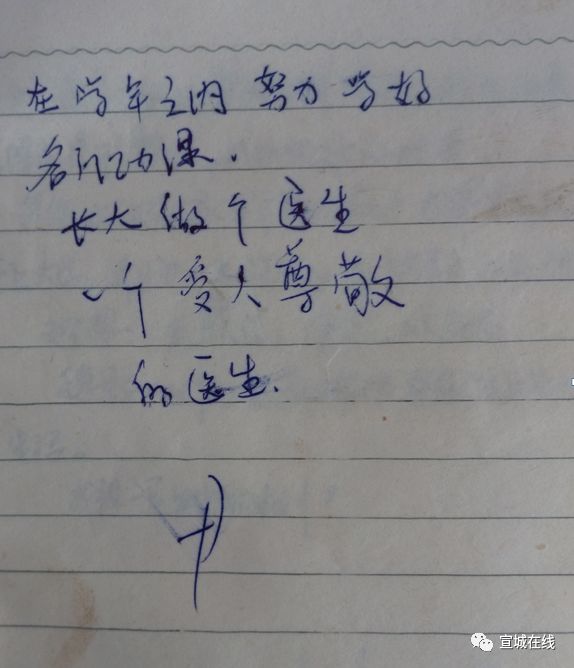 在学年之内 努力学好
各门功课.
长大做个医生
一个受人尊敬
的医生.
宣城在线